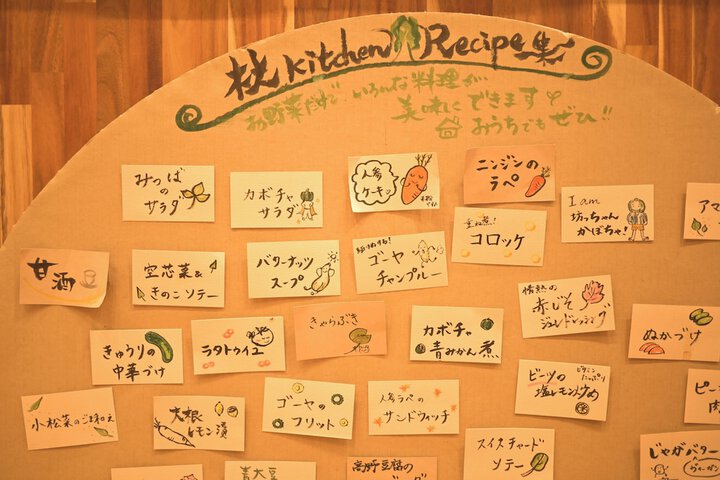 kitchen Recipe集
お野菜だけで いろんな料理が
美味しくできます
おうちでもぜひ!!
みつば
の
サラダ
カボチャ
サラダ
人参
ケーキッ
ニンジンの
ラペ
I am
坊っちゃん
かぼちゃ!
アマ
甘酒
空芯菜&
きのこソテー
バターナッツ
スープ
ゴーヤ
チャンプルー
重ね煮!
コロッケ
情熱の
赤じそ
ジュレドレッシング
きゅうりの
中華づけ
ラタトゥイユ
きゃらぶき
カボチャ
青みかん煮
ぬかづけ
小松菜のごま和え
大根
レモン漬
ゴーヤの
フリット
人参ラペの
サンドウィッチ
ビーツの
ビタミン
たっぷり
塩レモン炒め
ピー
肉
スイスチャード
ソテー
じゃがバター
青大豆
高野豆腐の